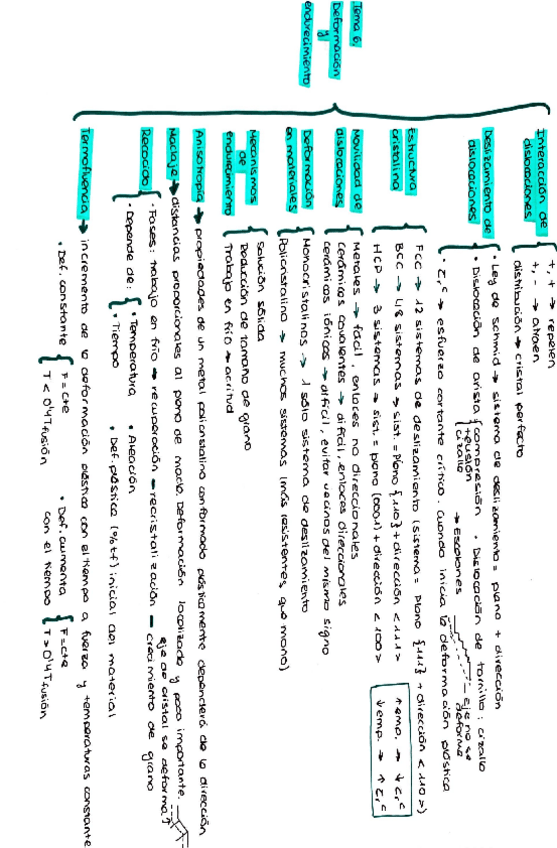 Tema 6:
Deformación
y
endurecimiento
Interacción de
dislocaciones
+, + → repelen
+, - → atraen
distribución → cristal perfecto
Deslizamiento de
dislocaciones
· Ley de schmid → sistema de deslizamiento = plano + dirección
· Dislocación de arista { compresión · Dislocación de tornillo : cizalla
tensión
cizalla
→ Escalones
eje no se
deforma
· τ, c → esfuerzo cortante crítico. Cuando inicia la deformación plástica
Estructura
cristalina
FCC → 12 sistemas de deslizamiento (sistema = Plano {111} + dirección <110>)
BCC → 48 sistemas → sist. = Plano {110} + dirección <111>
HCP → 3 sistemas → sist. = plano (0001) + dirección <100>
↑ emp. → ↓ τ, c
↓ emp. → ↑ τ, c
Movilidad de
dislocaciones
Metales → fácil, enlaces no direccionales
Cerámicos covalentes → difícil, enlaces direccionales
cerámicos iónicos → difícil, evitar vecinos del mismo signo
Deformación
en materiales
Monocristalinos → 1 sólo sistema de deslizamiento
Policristalino → muchos sistemas (más resistentes que mono)
Mecanismos
de
endurecimiento
Solución sólida
Reducción de tamaño de grano
Trabajo en frío → acritud
Anisotropía → propiedades de un metal policristalino conformado plásticamente dependerá de la dirección
Maclaje → distancias proporcionales al plano de macla. Deformación localizada y poco importante.
eje de cristal se deforma
Recocido
· Fases: trabajo en frío → recuperación → recristalización → crecimiento de grano
· Depende de: { · Temperatura · Aleación
· Tiempo · Def. plástica (%tf) inicial del material
Termofluencia → incremento de la deformación plástica con el tiempo a fuerza y temperaturas constante
· Def. constante { F = cte
T < 0'4 T fusión
· Def. aumenta
con el tiempo { F = cte
T > 0'4 T fusión